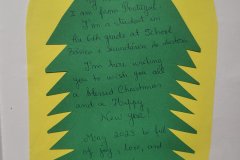 I am from Portugal.
I'm a student in
the 6th grade at School
I'm here writing
you to wish you all
a Blessed Christmas
and a Happy
New Year!
May 2023 be full
of joy, love, and